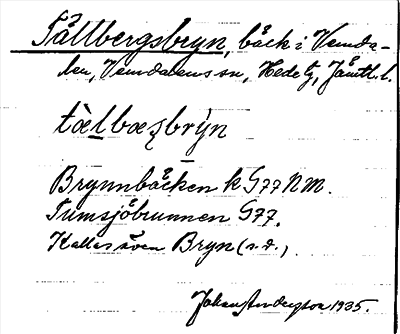 Tåltbergsbryn, bäck i Vemda-
len, Vemdalens sn, Hede tg, Jämtl. l.
tὰelbæʂbrỳn
Brynnbäcken k G77 N M.
Tumsjöbrunnen G77.
Kallas även Bryn (s.d.).
Johan Andersson 1935.